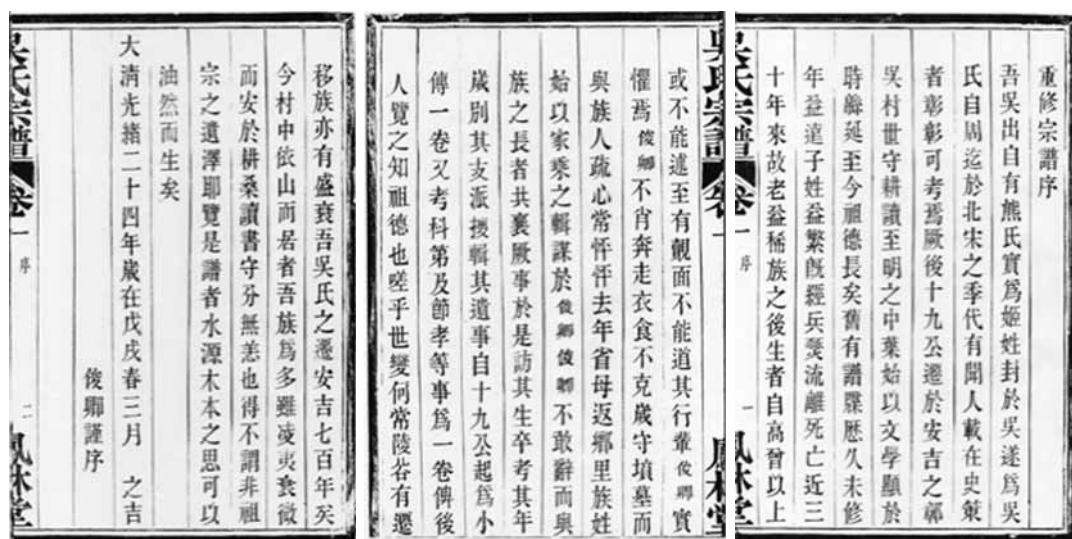 重修宗譜序
吾吳出自有熊氏實爲姬姓封於吳遂爲吳
氏自周迄於北宋之季代有聞人載在史策
者彰彰可考焉厥後十九公遷於安吉之鄣
吳村世守耕讀至明之中葉始以文學顯於
時緜延至今祖德長矣舊有譜牒歷久未修
年益遠子姓益繁旣經兵燹流離死亡近三
十年來故老益稀族之後生者自高曾以上
吳氏宗譜 卷一 序 一 鳳林堂
或不能述至有覿面不能道其行輩俊卿實
懼焉俊卿不肖奔走衣食不克歲守墳墓而
與族人疏心常怦怦去年省母返鄉里族姓
始以家乘之輯謀於俊卿俊卿不敢辭而與
族之長者共襄厥事於是訪其生卒考其年
歲別其支派搜輯其遺事自十九公起爲小
傳一卷又考科第及節孝等事爲一卷俾後
人覽之知祖德也嗟乎世變何常陵谷有遷
移族亦有盛衰吾吳氏之遷安吉七百年矣
今村中依山而居者吾族爲多雖凌夷衰微
而安於耕桑讀書守分無恙也得不謂非祖
宗之遺澤耶覽是譜者水源木本之思可以
油然而生矣
大清光緒二十四年歲在戊戌春三月 之吉
俊卿謹序
吳氏宗譜 卷一 序 二 鳳林堂